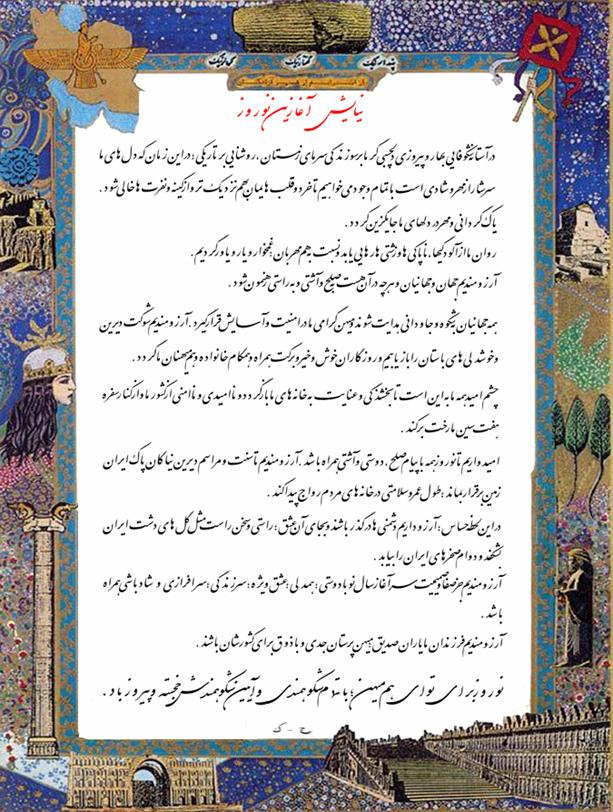 پندار نیک گفتار نیک کردار نیک
نیایش آغازین نوروز
در آستانه شکوفایی بهار و پیروزی دلچسبی گرما بر سوز ندگی سرمای زمستان ، روشنایی بر تاریکی ؛ در این زمان که دل های ما
سرشار از مهر و شادی است با تمام وجود می خواهیم تا خرد و قلب هایمان بهم نزدیک تر و از کینه و نفرت ها خالی شود .
پاک گردانی و مهر در دلهای ما جایگزین گردد .
روان ما از آلودگیها، ناپاکی ها و زشتی ها رهایی یابد و نسبت بهم مهربان غمخوار و یار و یاور گردیم .
آرزومندیم جهان و جهانیان و هر چه در آن هست به صلح و آشتی و به راستی رهنمون شود .
همه جهانیان به شکوه و جاودانی هدایت شوند و میهن گرامی ما در امنیت و آسایش قرار گیرد . آرزومندیم شوکت دیرین
و خوشدلی های باستان را باز یابیم و روزگاران خوش و خیر و برکت همراه و همگام خانواده و هم میهنان ما گردد .
چشم امید همه ما به این است تا بخشندگی و عنایت به خانه های ما باز گردد و ناامیدی و ناامنی از کشور ما و از کنار سفره
هفت سین ما رخت بر کند .
امیدواریم تا نوروز همه با پیام صلح ، دوستی و آشتی همراه باشد . آرزومندیم تا سنت و مراسم دیرین نیاکان پاک ایران
زمین برقرار بماند ؛ طول عمر و سلامتی در خانه های مردم رواج پیدا کند .
در این لحظه حساس ؛ آرزو داریم دشمنی ها در گذر باشند و بجای آن عشق ؛ راستی و سخن راست مثل گل های دشت ایران
بشکفد و دوام صخره های ایران را بیابد .
آرزومندیم هر صفا و صمیمیت سر آغاز سال نو با دوستی ؛ همدلی ؛ عشق ویژه ؛ سرزندگی ؛ سرافرازی و شادباشی همراه
باشد .
آرزومندیم فرزندان ما یاران صدیق میهن پرستان جدی و با ذوق برای کشورشان باشند .
نوروز برای تو ای هم میهن ؛ با تمام شکوهمندی و آیین شکوهمندش خجسته و پیروز باد .
ح - ک